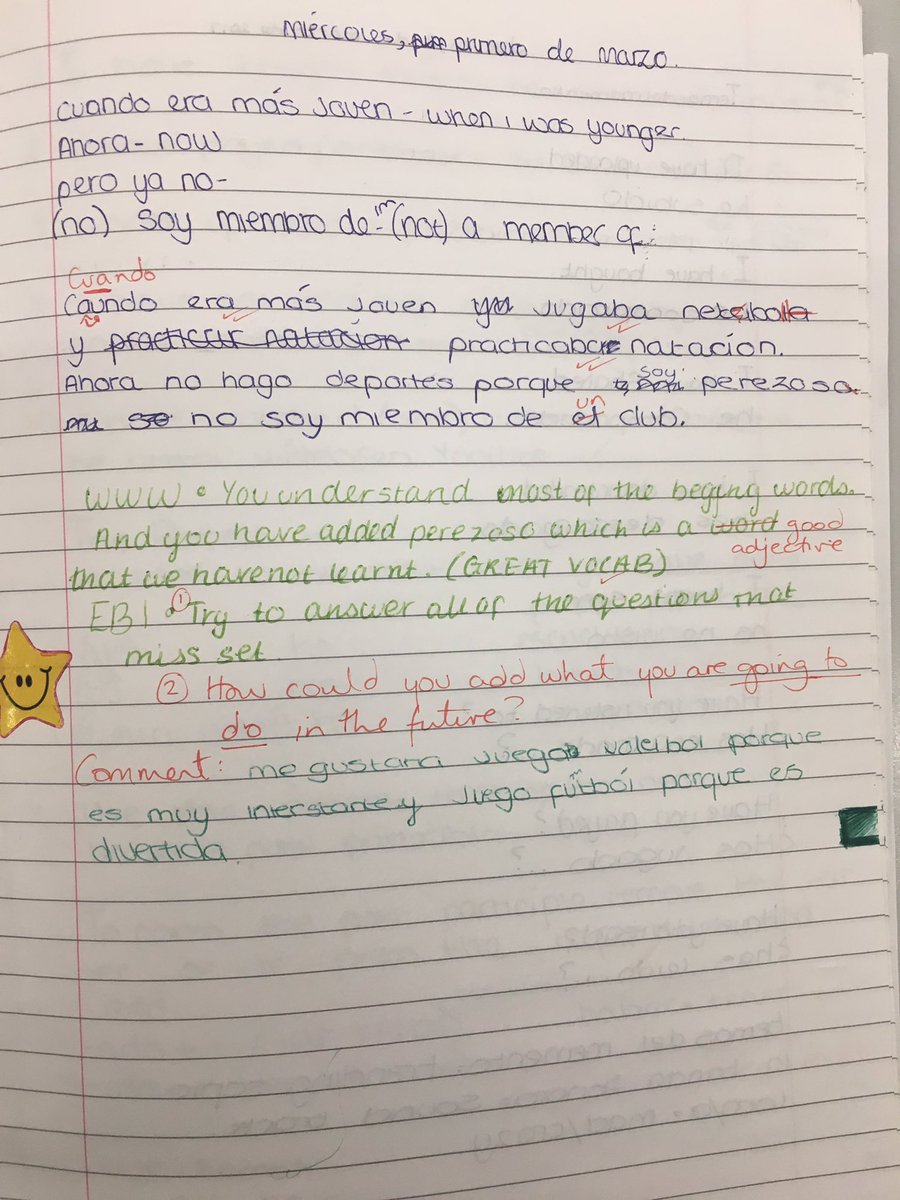 miércoles, primero de marzo.
cuando era más joven - when i was younger.
Ahora - now
pero ya no -
(no) soy miembro de - i'm (not) a member of:
Cuando
Caundo era más joven jugaba
y practicar natación practicaba natación.
Ahora no hago deportes porque soy perezosa
no soy miembro de un club.
WWW: You understand most of the beging words.
And you have added perezoso which is a word good
adjective
that we have not learnt. (GREAT VOCAB)
EBI: ① Try to answer all of the questions that
miss set
② How could you add what you are going to
do in the future?
Comment: me gustaria juego voleibol porque
es muy interstante y juego fútbol porque es
divertida.